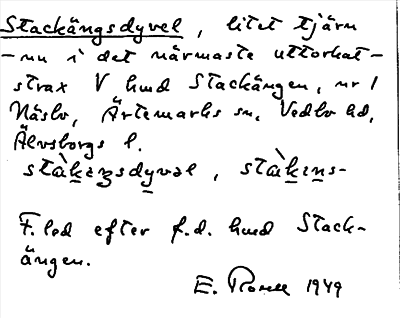 Stackängsdyvel, litet tjärn
- nu i det närmaste uttorkat -
strax V hmd Stackängen, nr 1
Näsbo, Ärtemarks sn, Vedbo hd,
Älvsborgs l.
stàkəŋsdyvəl, stàkəns-
F.led efter f.d. hmd Stack-
ängen.
E. 1949